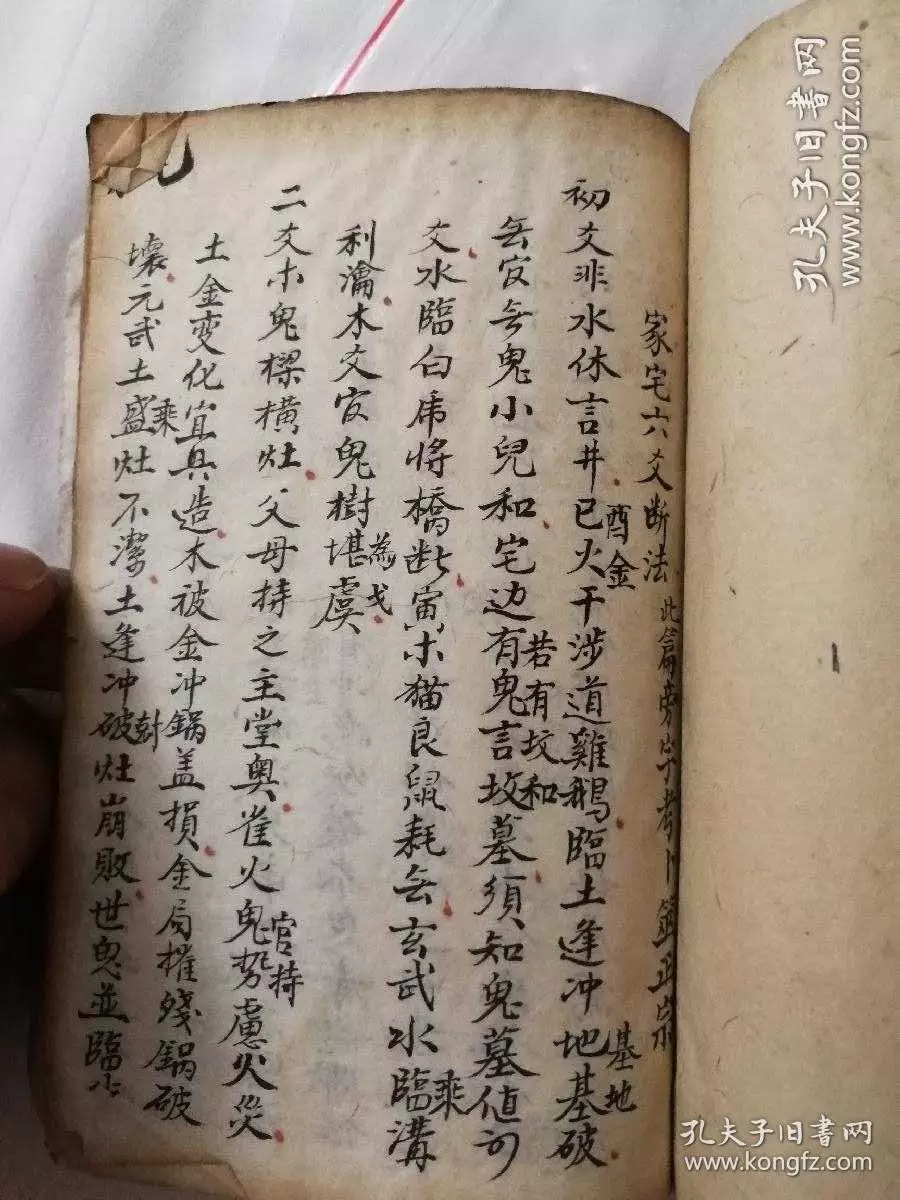 家宅六爻断法 此篇旁字考卜筮正宗
初爻非水休言井巳火干涉道雞鵝臨土逢冲地基破
酉金 基地
無官無鬼小兒和宅边有鬼言坟墓須知鬼墓值可
若有坟和
爻水臨白虎将橋断寅木猫良鼠耗無玄武水臨溝
乘
利瀹木爻官鬼樹堪虞
為戈
二爻木鬼樑横灶父母持之主堂奥雀火鬼势慮火災
官持
土金変化宜具造木被金冲鍋盖損金局摧殘鍋破
壞元武土盛灶不潔土逢冲破灶崩敗世鬼並臨
乘 尅
孔夫子旧书网
www.kongfz.com
孔夫子旧书网
www.kongfz.com